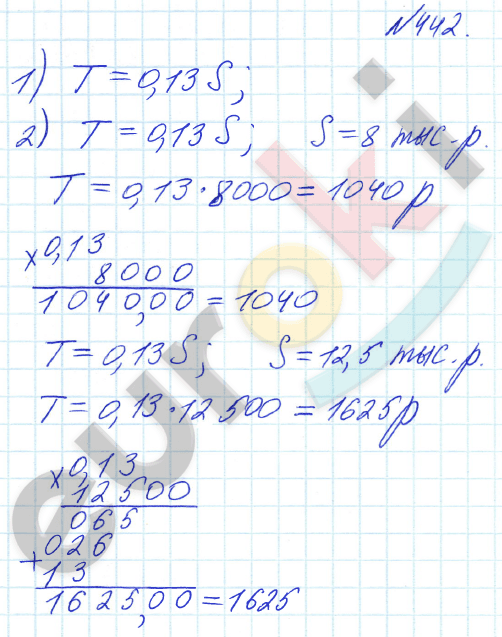 №442.
1) T = 0,13 S;
2) T = 0,13 S; S = 8 тыс.р.
T = 0,13 · 8000 = 1040 р
× 0,13
8000
1040,00 = 1040
T = 0,13 S; S = 12,5 тыс.р.
T = 0,13 · 12500 = 1625 р
× 0,13
12500
065
+ 026
13
1625,00 = 1625
euroki